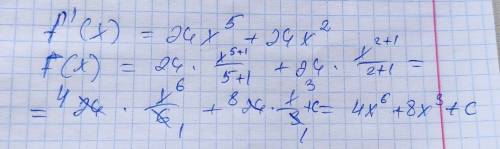 f'(x) = 24x⁵ + 24x²
F(x) = 24 · x⁵⁺¹/5+1 + 24 · x²⁺¹/2+1 =
= ⁴2̶4̶ · x⁶/6̶ ₁ + ⁸2̶4̶ · x³/3̶ ₁ +c = 4x⁶ + 8x³ + c